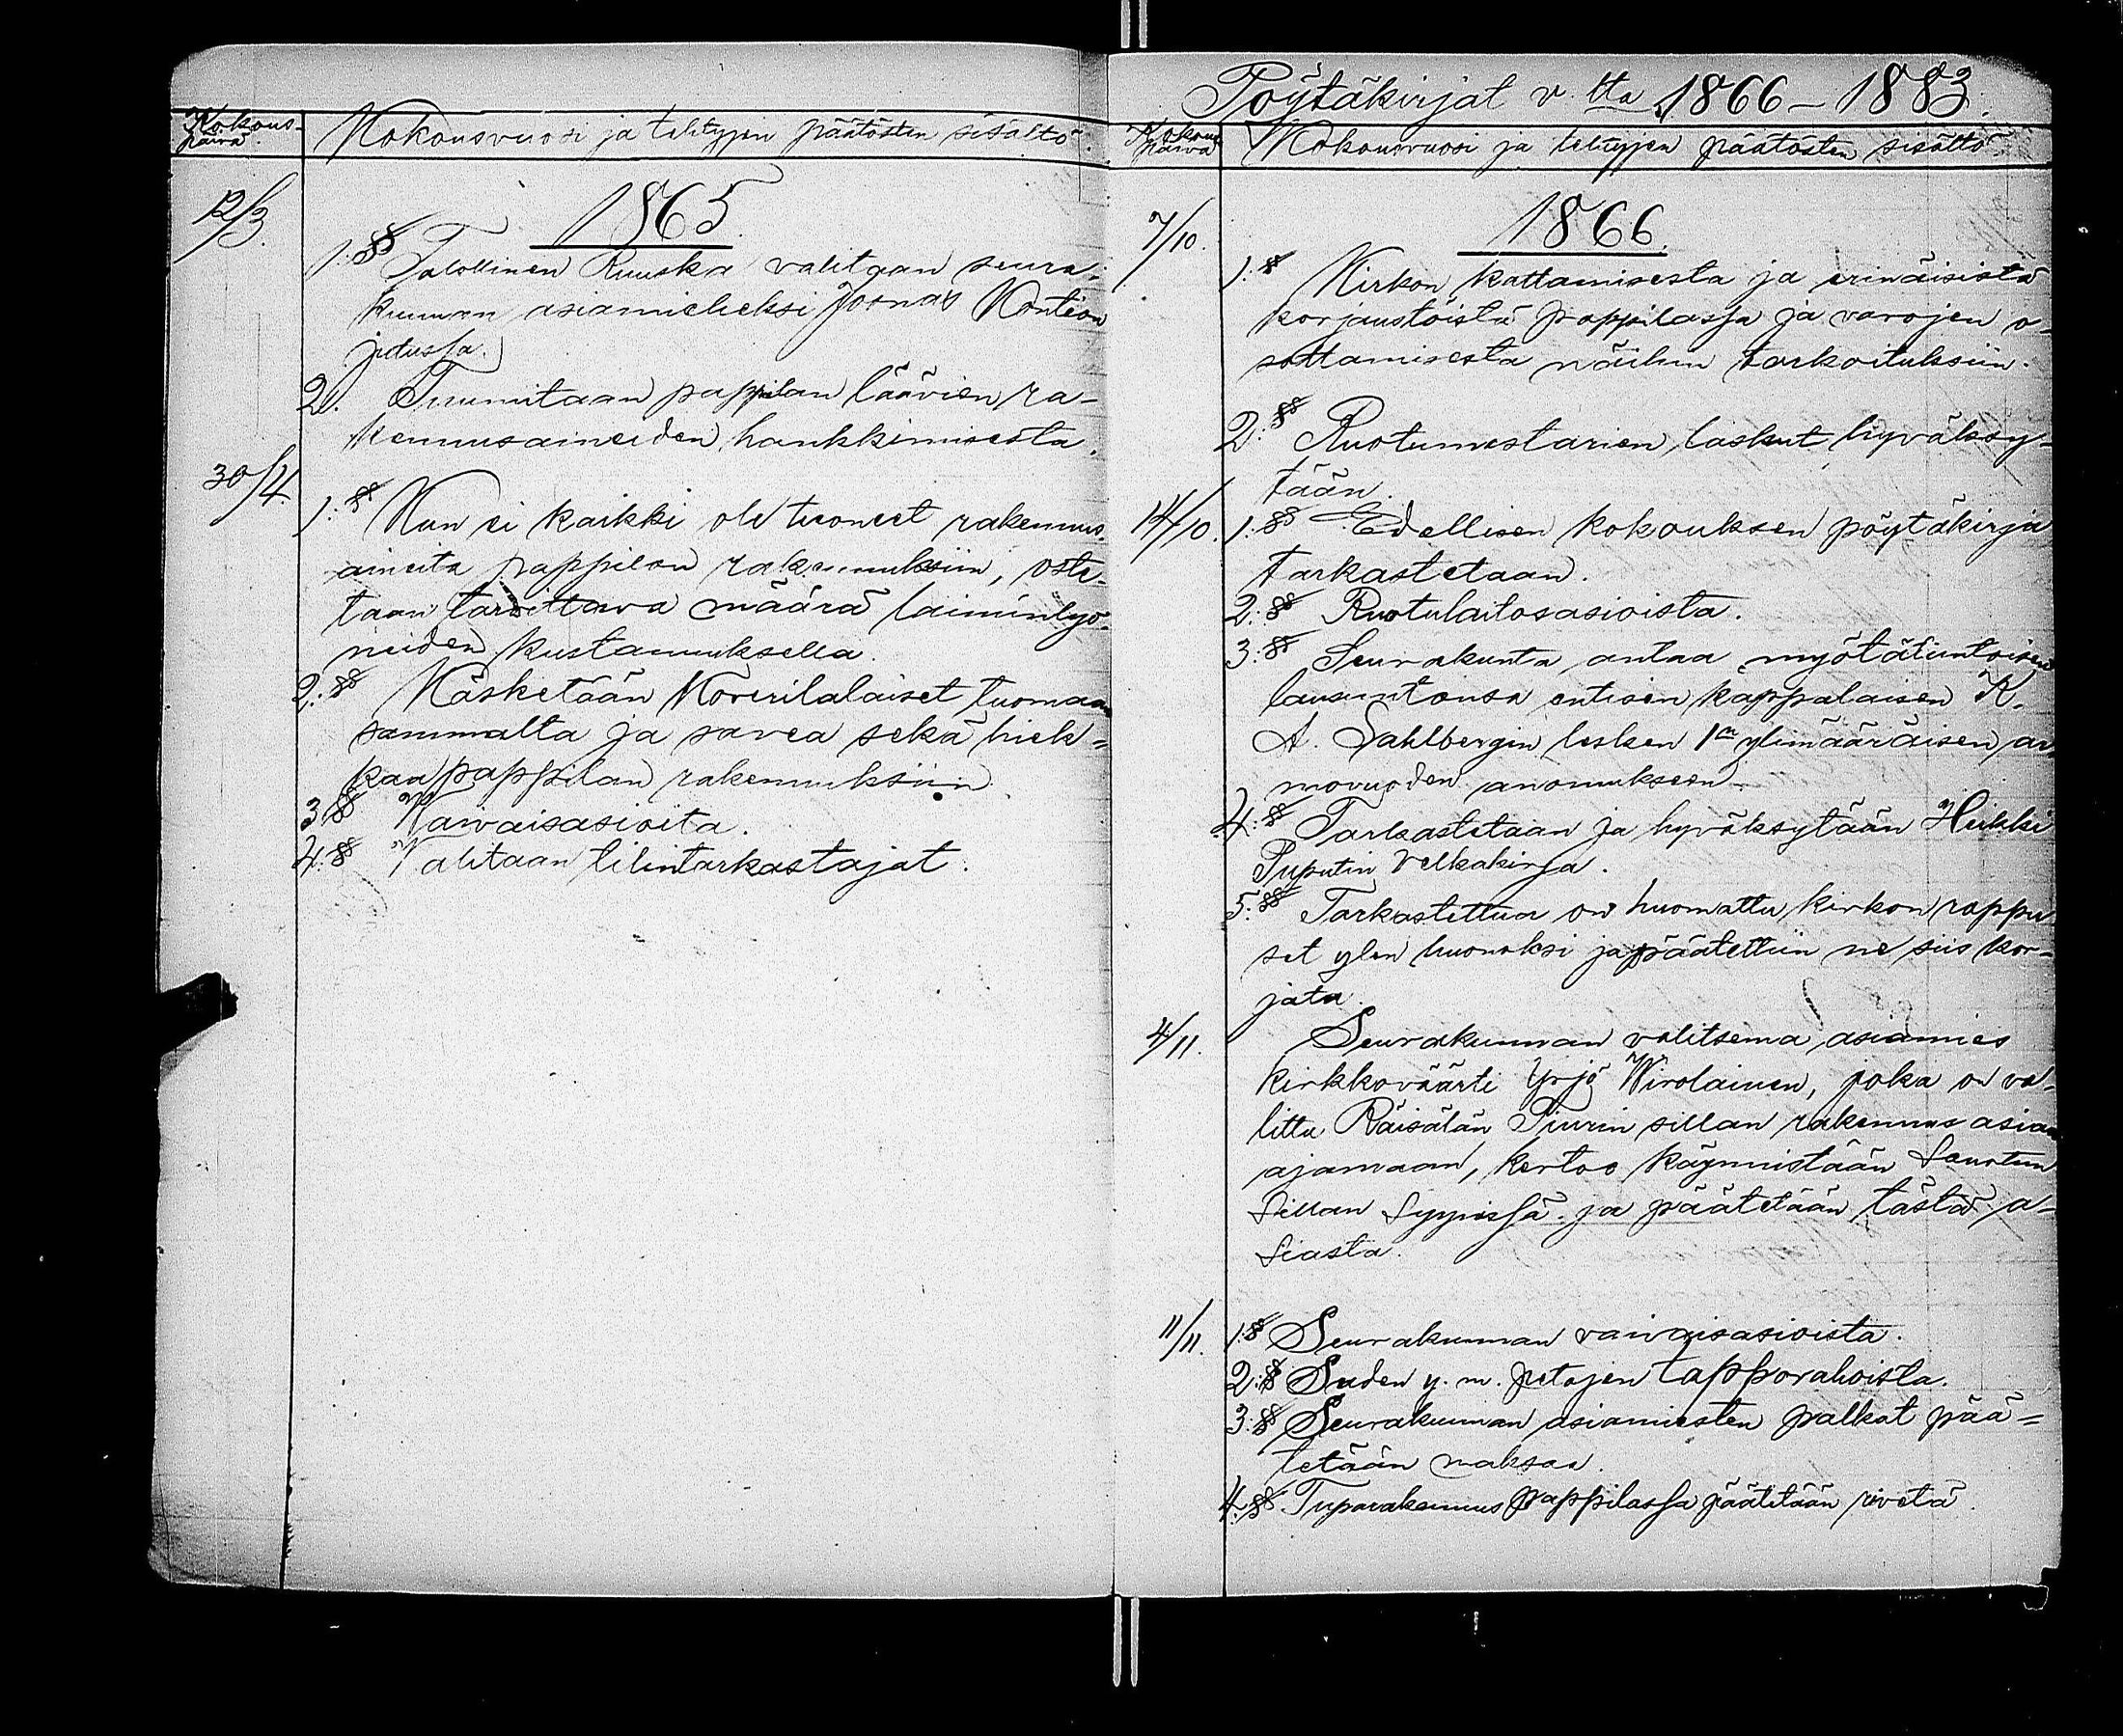 Kokous-
päivä.
Kokousvuosi ja tehtyjen päätösten sisältö.
12/3.
1865.
1:§ Talollinen Ruuska valitaan seura-
kunnan asiamieheksi Joonas Kontion
jutussa.
2. Tuumitaan pappilan läävien ra-
kennusaineiden hankkimisesta.
30/4.
1:§ Kun ei kaikki ole tuoneet rakennus-
aineita pappilan rakennuksiin, oste-
taan tarvittava määrä laiminlyö-
neiden kustannuksella.
2:§§ Käsketään Koverilalaiset tuomaan
sammalta ja savea sekä hiek-
kaa pappilan rakennuksiin.
3:§ Vaivaisasioita.
4:§§ Valitaan tilintarkastajat.
Pöytäkirjat v. lta 1866–1883.
Kokous
päivä
Kokousvuosi ja tehtyjen päätösten sisältö.
7/10.
1866.
1:§ Kirkon kattamisesta ja erinäisistä
korjaustöistä pappilassa ja varojen o-
sottamisesta näihin tarkoituksiin.
2:§§ Ruotumestarien laskut hyväksy-
tään.
14/10.
1:§§ Edellisen kokouksen pöytäkirja
tarkastetaan.
2:§§ Ruotulaitosasioista.
3:§§ Seurakunta antaa myötätuntoisen
lausuntonsa entisen kappalaisen K.
A. Sahlbergin lesken 1en ylimääräisen ar-
movuoden anomukseen.
4:§ Tarkastetaan ja hyväksytään Heikki
Puputin velkakirja.
5:§§ Tarkastettua on huomattu kirkon rappu
set ylen huonoksi ja päätettiin ne siis kor-
jata.
4/11.
Seurakunnan valitsema asiamies
kirkkoväärti Yrjö Wirolainen, joka on va-
littu Räisälän Tiurin sillan rakennus asiaa
ajamaan, kertoo käynnistään
Sillan Syynissä ja päätetään tästä a-
siasta.
11/11.
1:§ Seurakunnan vaivaisasioista.
2:§ Suden y. m. petojen tapporahoista.
3:§§ Seurakunnan asiamiesten palkat pää-
tetään maksaa.
4:§§ Tuparakennus pappilassa päätetään rivetä.